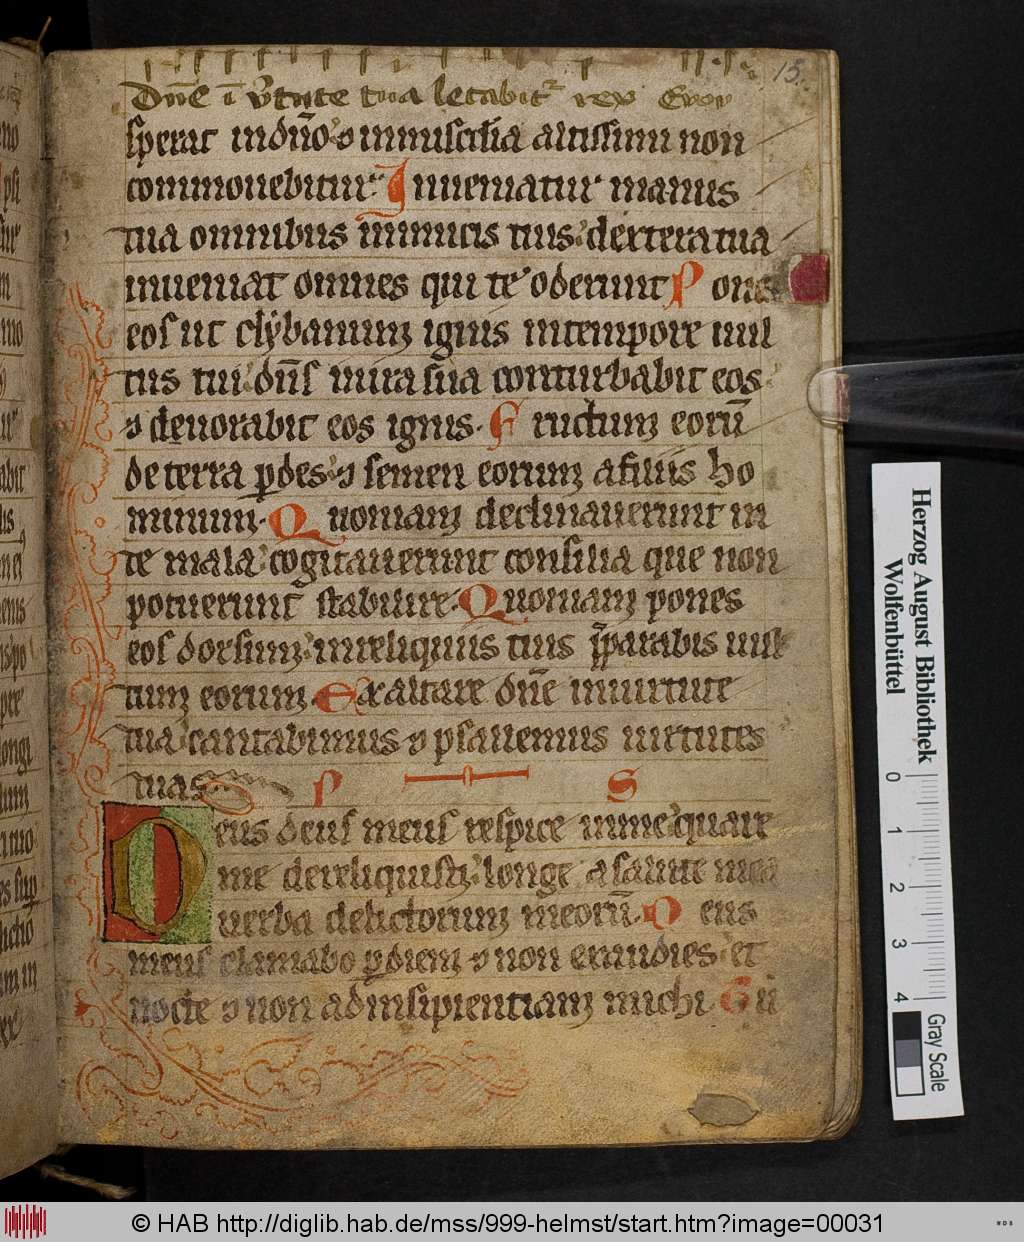 15.
Dn̄e ī v̄tute tua letabit᷑ rex Exor
sperat in dn̄o ⁊ in misc̄dia altissimi non
commouebitur. Inueniatur manus
tua omnibus inimicis tuis: dextera tua
inueniat omnes qui te oderunt Pones
eos ut clybanum ignis in tempore uul
tus tui: dn̄s in ira sua conturbabit eos:
⁊ deuorabit eos ignis. Fructum eorū
de terra ꝑdes: ⁊ semen eorum a filiis ho
minum. Quoniam declinauerunt in
te mala: cogitauerunt consilia que non
potuerunt stabilire. Quoniam pones
eos dorsum: in reliquiis tuis p̄parabis uul
tum eorum. Exaltare dn̄e in uirtute
tua: cantabimus ⁊ psallemus uirtutes
tuas. P S
Deus deus meus respice in me: quare
me dereliquisti: longe a salute mea
uerba delictorum meorū. Deus
meus clamabo ꝑ diem ⁊ non exaudies: et
nocte ⁊ non ad insipientiam michi. Tu
Herzog August Bibliothek
Wolfenbüttel
0 1 2 3 4
Gray Scale
© HAB http://diglib.hab.de/mss/999-helmst/start.htm?image=00031